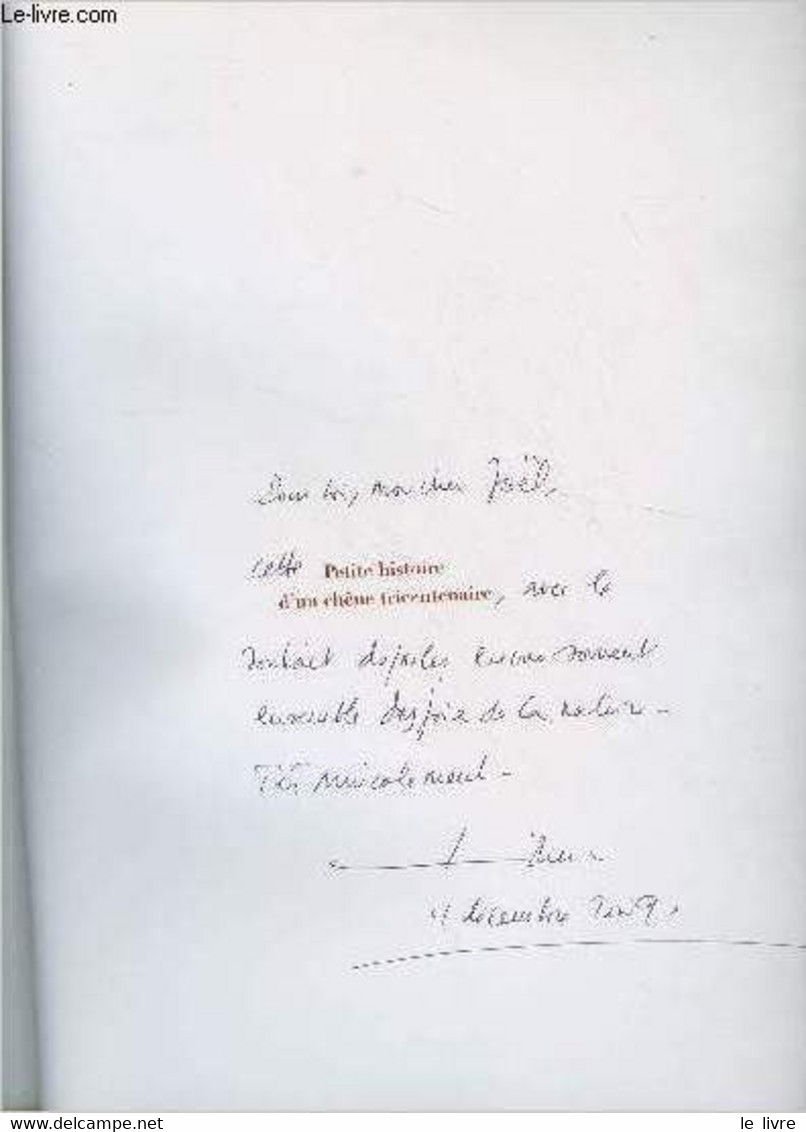 Le-livre.com
Pour toi, mon cher Joël,
cette Petite histoire
d'un chêne tricentenaire, avec le
souhait de parler encore souvent
ensemble des joies de la nature -
Très amicalement -
décembre
le livre